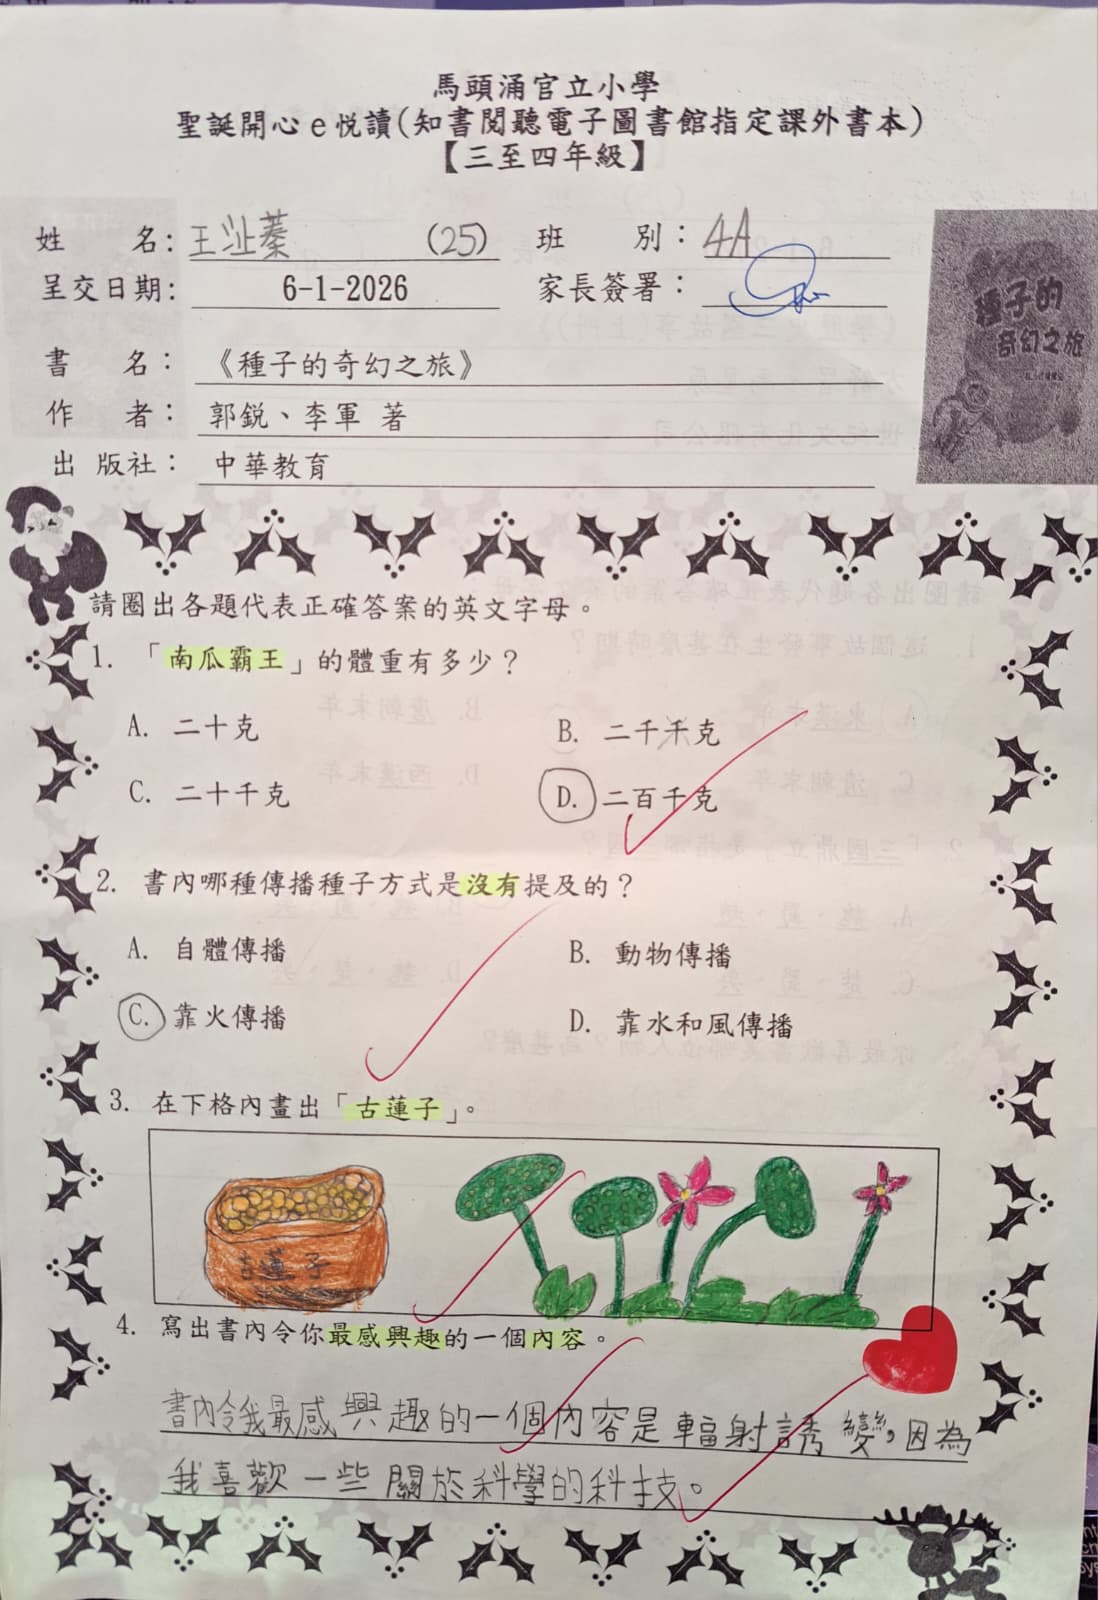 馬頭涌官立小學
聖誕開心e悅讀(知書閱聽電子圖書館指定課外書本)
【三至四年級】
姓 名: 王沚蓁 (25) 班 別: 4A
呈交日期: 6-1-2026 家長簽署:
書 名: 《種子的奇幻之旅》
作 者: 郭銳、李軍 著
出 版社: 中華教育
種子的
奇幻之旅
請圈出各題代表正確答案的英文字母。
1. 「南瓜霸王」的體重有多少?
A. 二十克 B. 二千千克
C. 二十千克 D. 二百千克
2. 書內哪種傳播種子方式是沒有提及的?
A. 自體傳播 B. 動物傳播
C. 靠火傳播 D. 靠水和風傳播
3. 在下格內畫出「古蓮子」。
古蓮子
4. 寫出書內令你最感興趣的一個內容。
書內令我最感興趣的一個內容是輻射誘變,因為
我喜歡一些關於科學的科技。